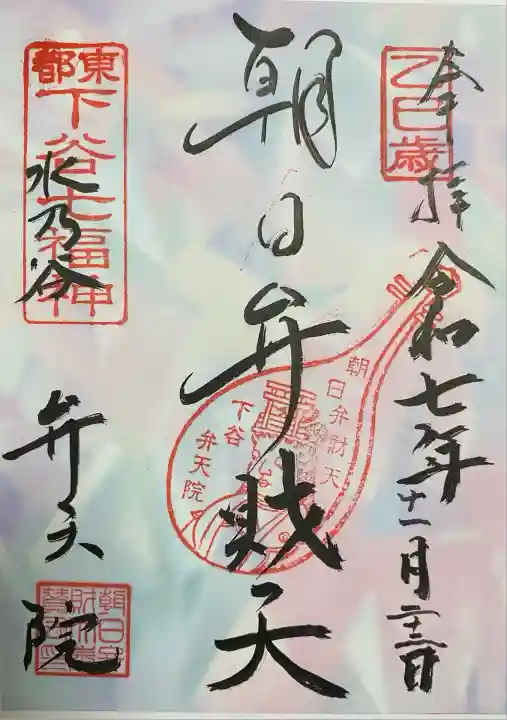 奉拝
令和七年十一月二十三日
乙巳歳
朝日弁財天
朝日弁財天
下谷
弁天院
東都
下谷七福神
水乃谷
弁天院